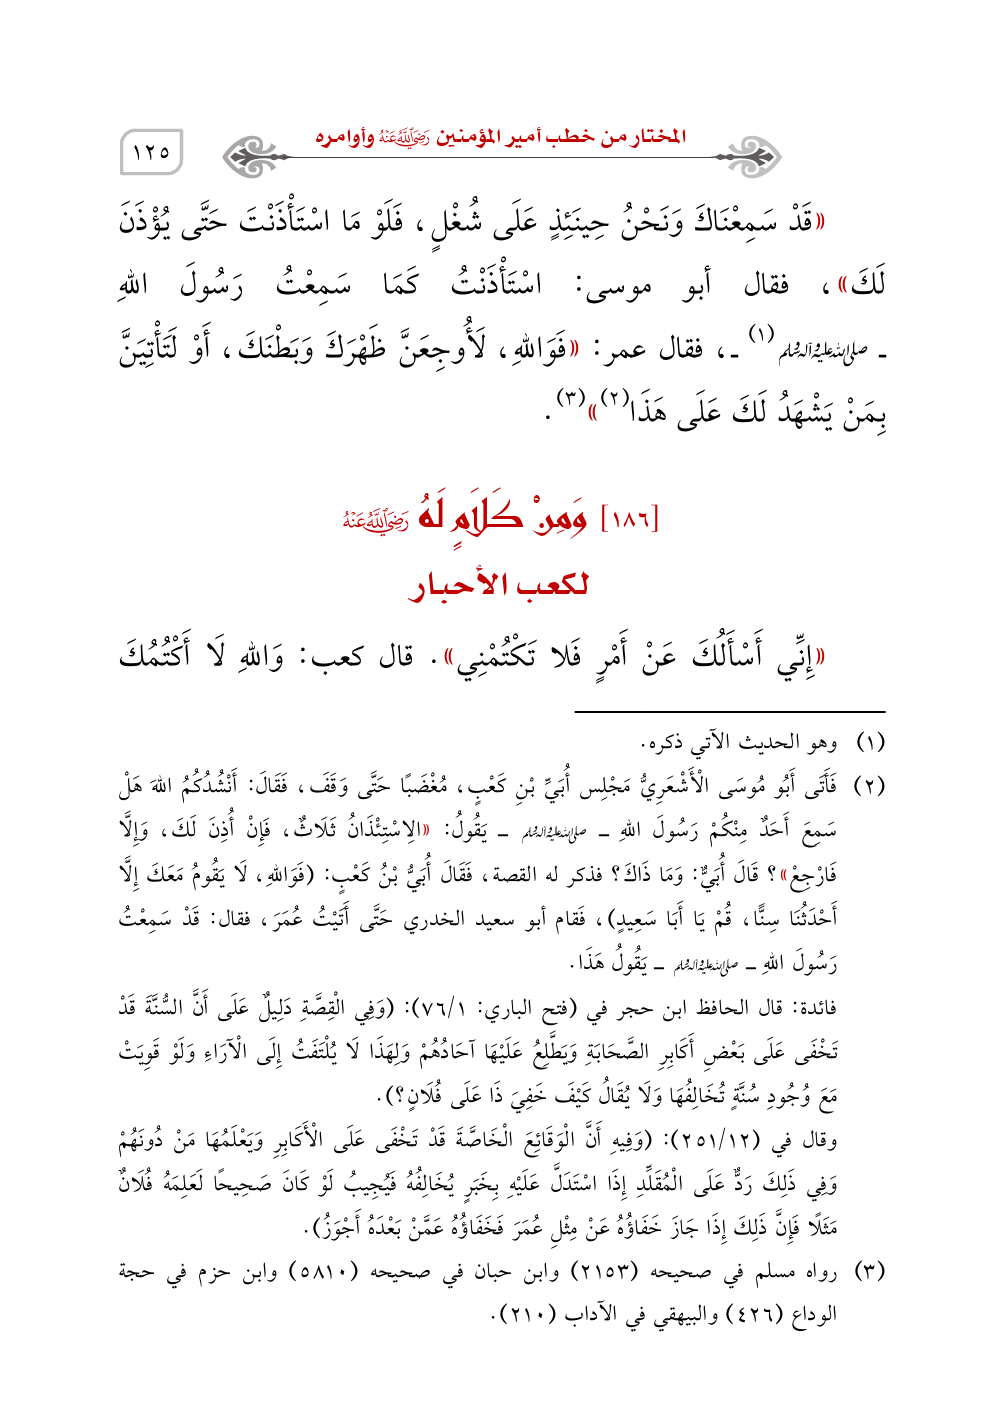 المختار من خطب أمير المؤمنين رضي الله عنه وأوامره
١٢٥
«قَدْ سَمِعْنَاكَ وَنَحْنُ حِينَئِذٍ عَلَى شُغْلٍ، فَلَوْ مَا اسْتَأْذَنْتَ حَتَّى يُؤْذَنَ
لَكَ»، فقال أبو موسى: اسْتَأْذَنْتُ كَمَا سَمِعْتُ رَسُولَ اللهِ
ـ صلى الله عليه وآله وسلم (١) ـ، فقال عمر: «فَوَاللهِ، لَأُوجِعَنَّ ظَهْرَكَ وَبَطْنَكَ، أَوْ لَتَأْتِيَنَّ
بِمَنْ يَشْهَدُ لَكَ عَلَى هَذَا(٢)»(٣).
[١٨٦] وَمِنْ كَلَامٍ لَهُ رضي الله عنه
لكعب الأحبار
«إِنِّي أَسْأَلُكَ عَنْ أَمْرٍ فَلا تَكْتُمْنِي». قال كعب: وَاللهِ لَا أَكْتُمُكَ
(١) وهو الحديث الآتي ذكره.
(٢) فَأَتَى أَبُو مُوسَى الْأَشْعَرِيُّ مَجْلِس أُبَيِّ بْنِ كَعْبٍ، مُغْضَبًا حَتَّى وَقَفَ، فَقَالَ: أَنْشُدُكُمُ اللهَ هَلْ
سَمِعَ أَحَدٌ مِنْكُمْ رَسُولَ اللهِ ـ صلى الله عليه وآله وسلم ـ يَقُولُ: «الِاسْتِئْذَانُ ثَلَاثٌ، فَإِنْ أُذِنَ لَكَ، وَإِلَّا
فَارْجِعْ»؟ قَالَ أُبَيٌّ: وَمَا ذَاكَ؟ فذكر له القصة، فَقَالَ أُبَيُّ بْنُ كَعْبٍ: (فَوَاللهِ، لَا يَقُومُ مَعَكَ إِلَّا
أَحْدَثُنَا سِنًّا، قُمْ يَا أَبَا سَعِيدٍ)، فَقام أبو سعيد الخدري حَتَّى أَتَيْتُ عُمَرَ، فقال: قَدْ سَمِعْتُ
رَسُولَ اللهِ ـ صلى الله عليه وآله وسلم ـ يَقُولُ هَذَا.
فائدة: قال الحافظ ابن حجر في (فتح الباري: ٧٦/١): (وَفِي الْقِصَّةِ دَلِيلٌ عَلَى أَنَّ السُّنَّةَ قَدْ
تَخْفَى عَلَى بَعْضِ أَكَابِرِ الصَّحَابَةِ وَيَطَّلِعُ عَلَيْهَا آحَادُهُمْ وَلِهَذَا لَا يُلْتَفَتُ إِلَى الْآرَاءِ وَلَوْ قَوِيَتْ
مَعَ وُجُودِ سُنَّةٍ تُخَالِفُهَا وَلَا يُقَالُ كَيْفَ خَفِيَ ذَا عَلَى فُلَانٍ؟).
وقال في (٢٥١/١٢): (وَفِيهِ أَنَّ الْوَقَائِعَ الْخَاصَّةَ قَدْ تَخْفَى عَلَى الْأَكَابِرِ وَيَعْلَمُهَا مَنْ دُونَهُمْ
وَفِي ذَلِكَ رَدٌّ عَلَى الْمُقَلِّدِ إِذَا اسْتَدَلَّ عَلَيْهِ بِخَبَرٍ يُخَالِفُهُ فَيُجِيبُ لَوْ كَانَ صَحِيحًا لَعَلِمَهُ فُلَانٌ
مَثَلًا فَإِنَّ ذَلِكَ إِذَا جَازَ خَفَاؤُهُ عَنْ مِثْلِ عُمَرَ فَخَفَاؤُهُ عَمَّنْ بَعْدَهُ أَجْوَزُ).
(٣) رواه مسلم في صحيحه (٢١٥٣) وابن حبان في صحيحه (٥٨١٠) وابن حزم في حجة
الوداع (٤٢٦) والبيهقي في الآداب (٢١٠).